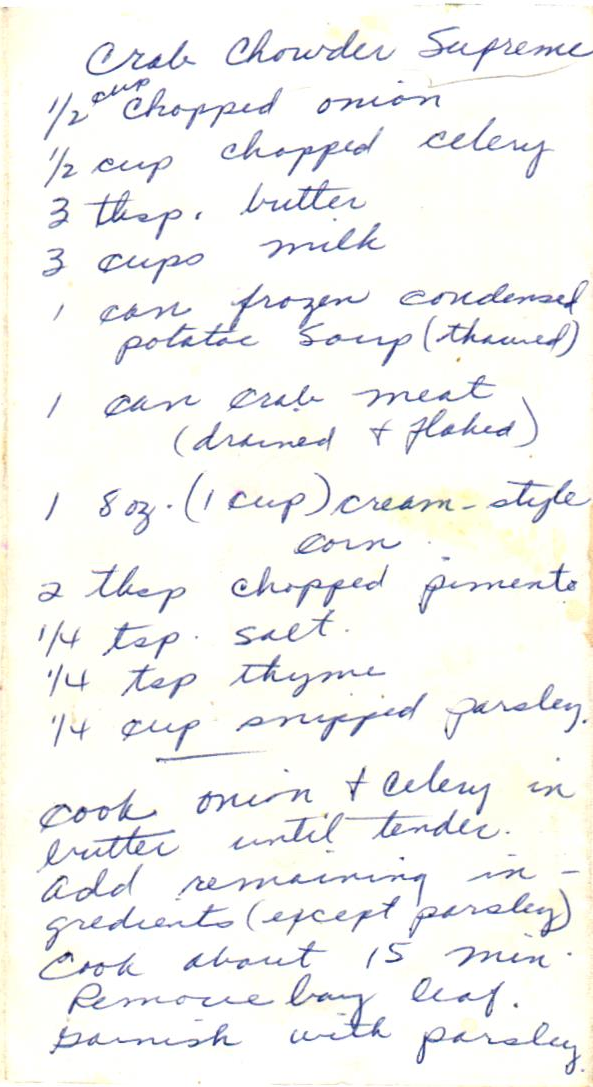 Crab Chowder Supreme
1/2 cup chopped onion
1/2 cup chopped celery
3 tbsp. butter
3 cups milk
1 can frozen condensed
potatoe soup (thawed)
1 can crab meat
(drained + flaked)
1 8 oz. (1 cup) cream-style
corn
2 tbsp chopped pimento
1/4 tsp. salt.
1/4 tsp thyme
1/4 cup snipped parsley.
Cook onion + celery in
butter until tender.
Add remaining in-
gredients (except parsley)
Cook about 15 min.
Remove bay leaf.
Garnish with parsley.